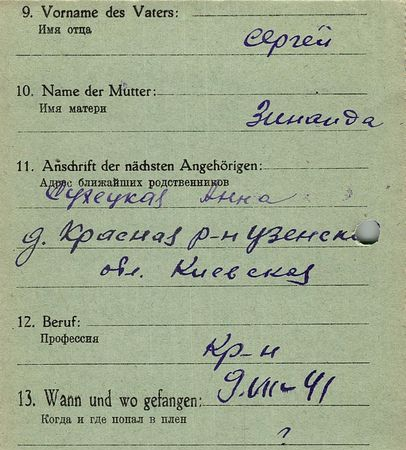 9. Vorname des Vaters:
Имя отца
Сергей
10. Name der Mutter:
Имя матери
Зинаида
11. Anschrift der nächsten Angehörigen:
Адрес ближайших родственников
Анна
д. Красная р-н
обл. Киевская
12. Beruf:
Профессия
Кр-н
13. Wann und wo gefangen:
9.VII-41
Когда и где попал в плен
?